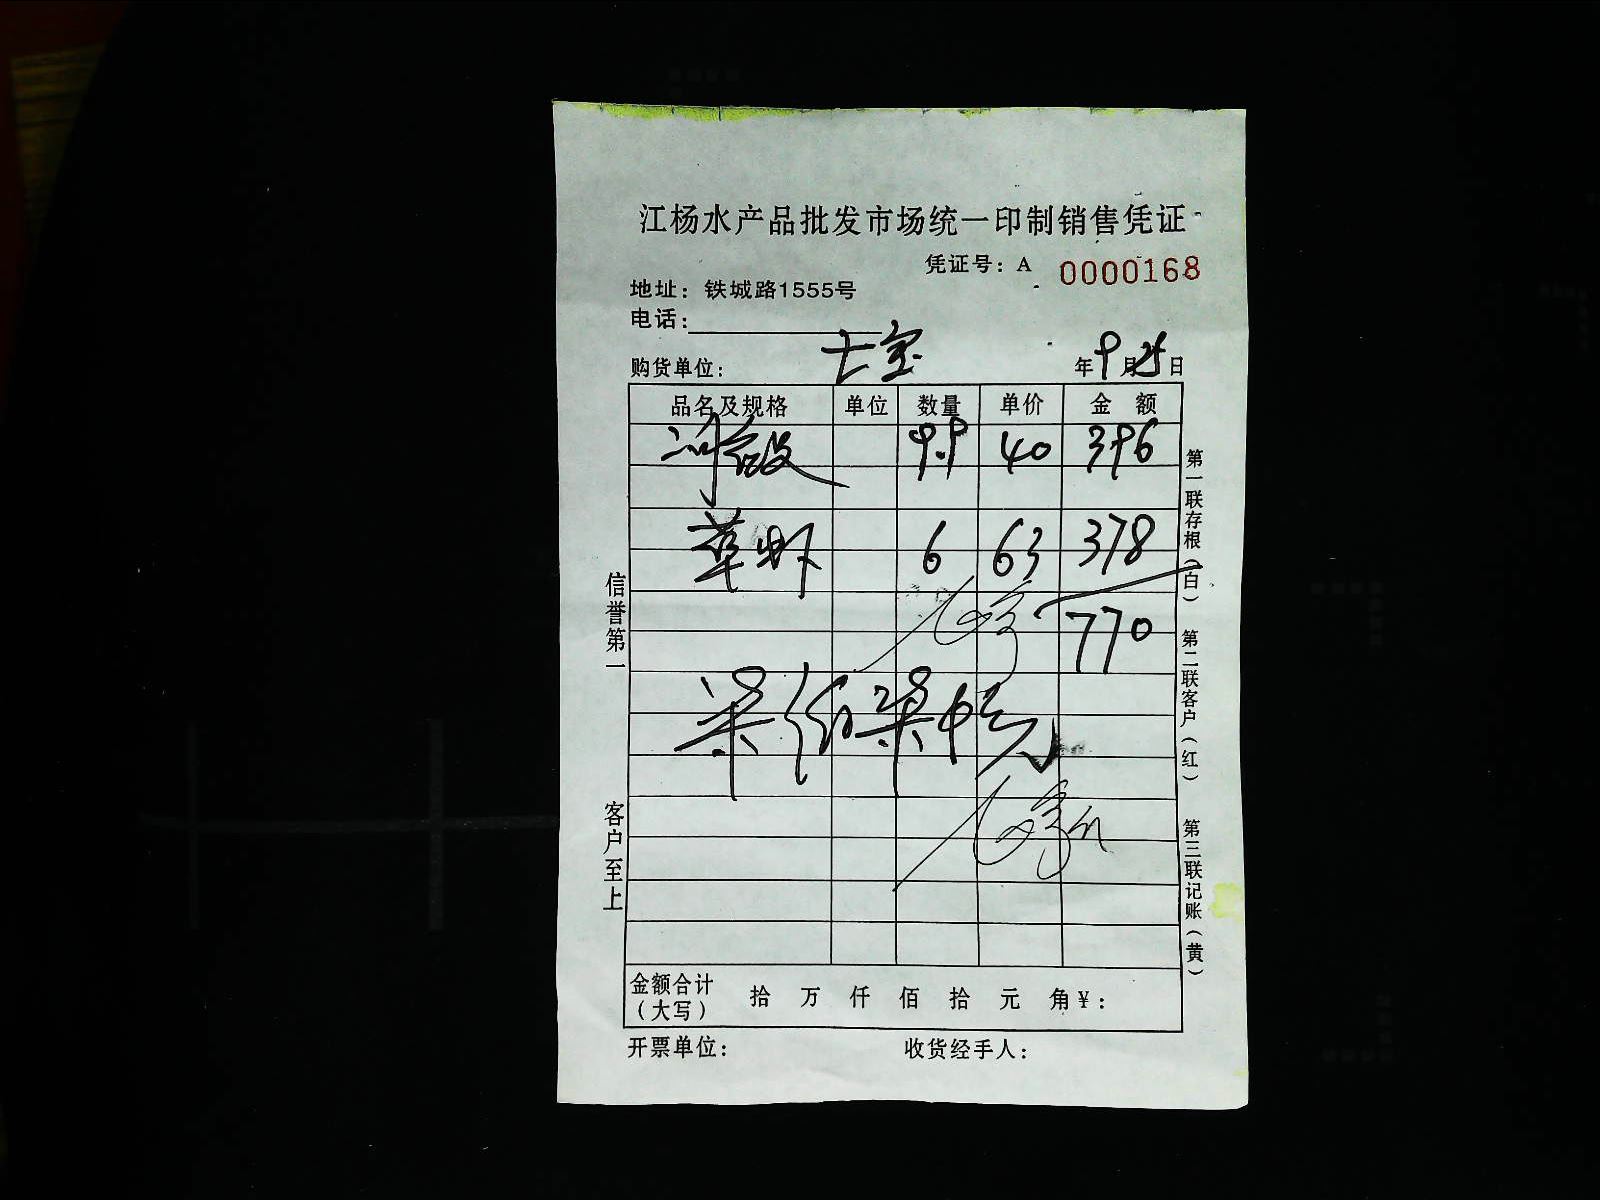 江杨水产品批发市场统一印制销售凭证
凭证号：A 0000168
地址：铁城路1555号
电话：
购货单位： 七宝 年 9 月 25 日
品名及规格 单位 数量 单价 金 额
9.9 40 396
草虾 6 63 378
770
金额合计（大写） 拾 万 仟 佰 拾 元 角 ¥：
开票单位： 收货经手人：
信誉第一
客户至上
第一联存根（白）
第二联客户（红）
第三联记账（黄）